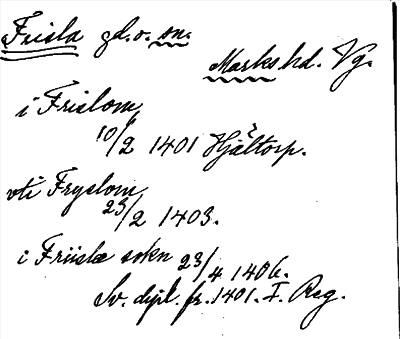 Frisla gd. o. sn.
Marks hd. Vg.
i Frislom,
10/2 1401 Hjältorp.
vti Fryslom,
23/2 1403.
i Friislæ sokn 23/4 1406.
Sv. dipl. fr. 1401. I. Reg.